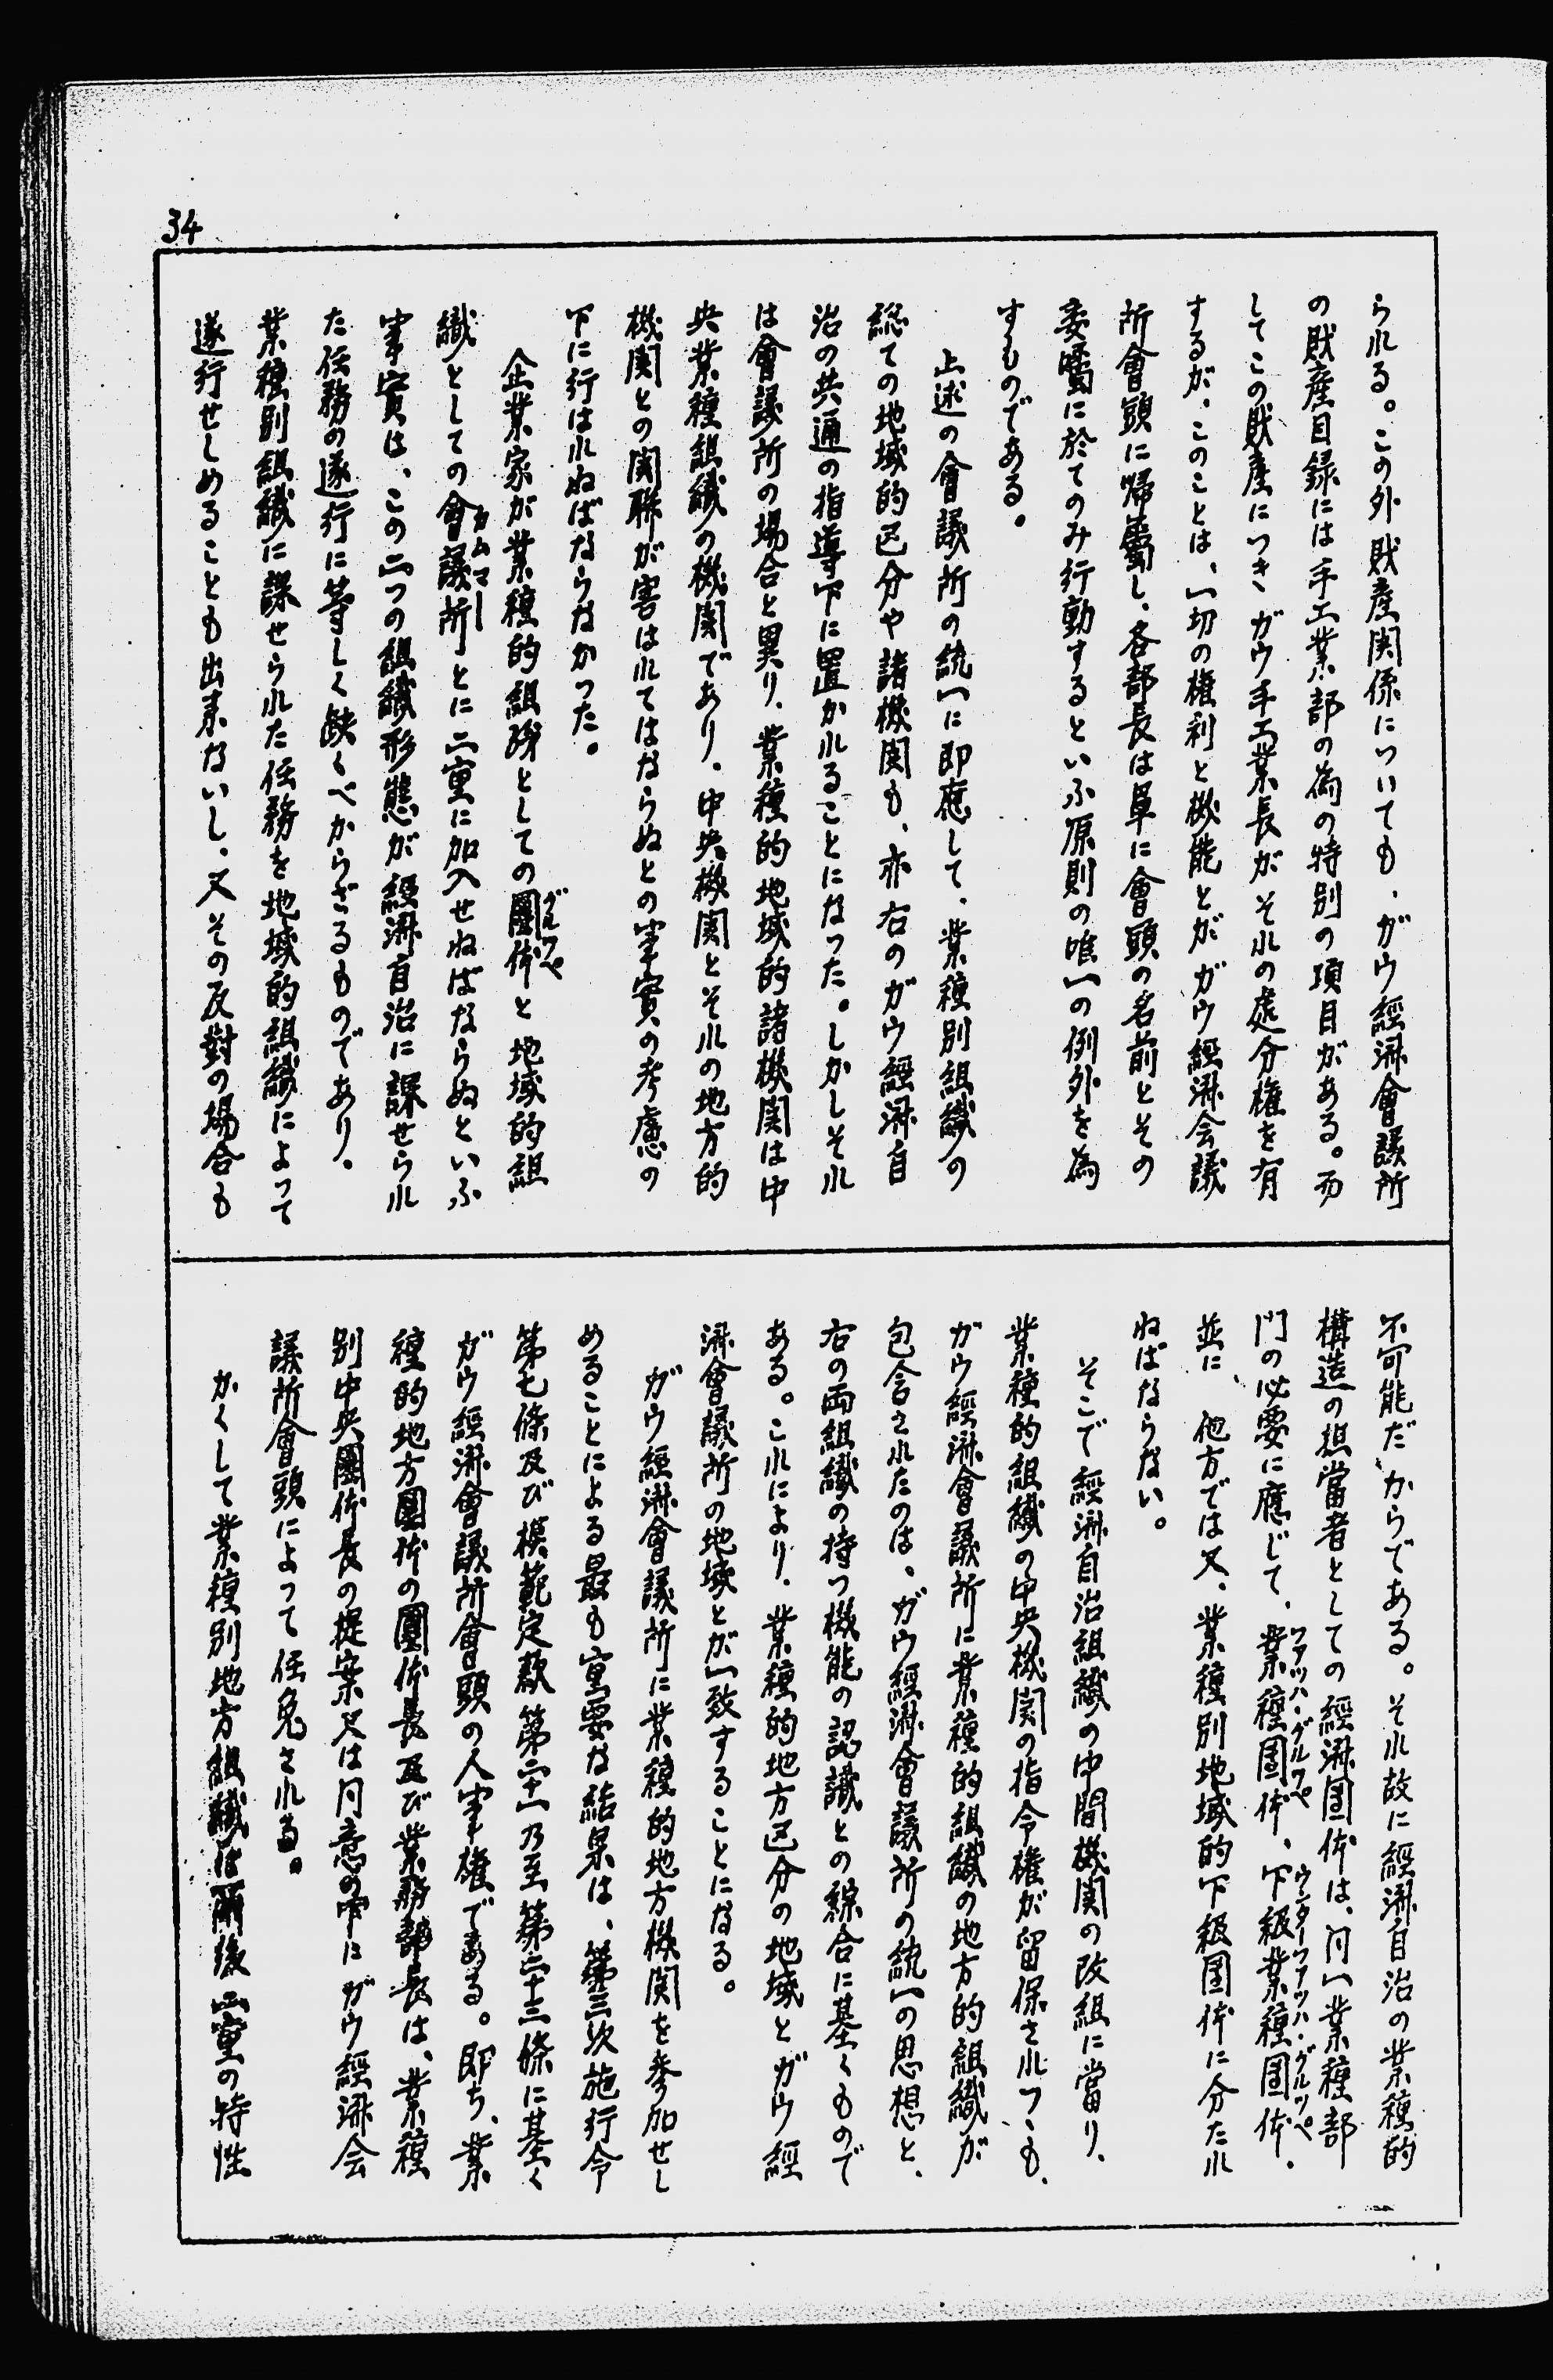 34
られる。この外財産関係についても、ガウ經済會議所
の財産目録には手工業部の為の特別の項目がある。而
してこの財産につきガウ手工業長がそれの處分権を有
するが、このことは、一切の権利と機能とがガウ經済会議
所會頭に帰屬し、各部長は単に會頭の名前とその
委嘱に於てのみ行動するといふ原則の唯一の例外を為
すものである。
上述の會議所の統一に即應して、業種別組織の
総ての地域的区分や諸機関も、亦右のガウ經済自
治の共通の指導下に置かれることになった。しかしそれ
は會議所の場合と異り、業種的地域的諸機関は中
央業種組織の機関であり、中央機関とそれの地方的
機関との関聯が害はれてはならぬとの事實の考慮の
下に行はれねばならなかった。
企業家が業種的組織としての團体グルッペと地域的組
織としての會議所カムマーとに二重に加入せねばならぬといふ
事實は、この二つの組織形態が經済自治に課せられ
た任務の遂行に等しく缺くべからざるものであり、
業種別組織に課せられた任務を地域的組織によって
遂行せしめることも出来ないし、又その反對の場合も
不可能だからである。それ故に經済自治の業種的
構造の担當者としての經済団体は、同一業種部
門の必要に應じて、業種団体ファッハ・グルッペ、下級業種団体ウンターファッハ・グルッペ、
並に、他方では又、業種別地域的下級団体に分たれ
ねばならない。
そこで經済自治組織の中間機関の改組に當り、
業種的組織の中央機関の指令権が留保されつゝも、
ガウ經済會議所に業種的組織の地方的組織が
包含されたのは、ガウ經済會議所の統一の思想と、
右の両組織の持つ機能の認識との綜合に基くもので
ある。これにより、業種的地方区分の地域とガウ經
済會議所の地域とが一致することになる。
ガウ經済會議所に業種的地方機関を参加せし
めることによる最も重要な結果は、第三次施行令
第七條及び模範定款第二十一乃至第二十三條に基く
ガウ經済會議所會頭の人事権である。即ち、業
種的地方團体の團体長及び業務部長は、業種
別中央團体長の提案又は同意の下にガウ經済会
議所會頭によって任免される。
かくして業種別地方組織は爾後二重の特性